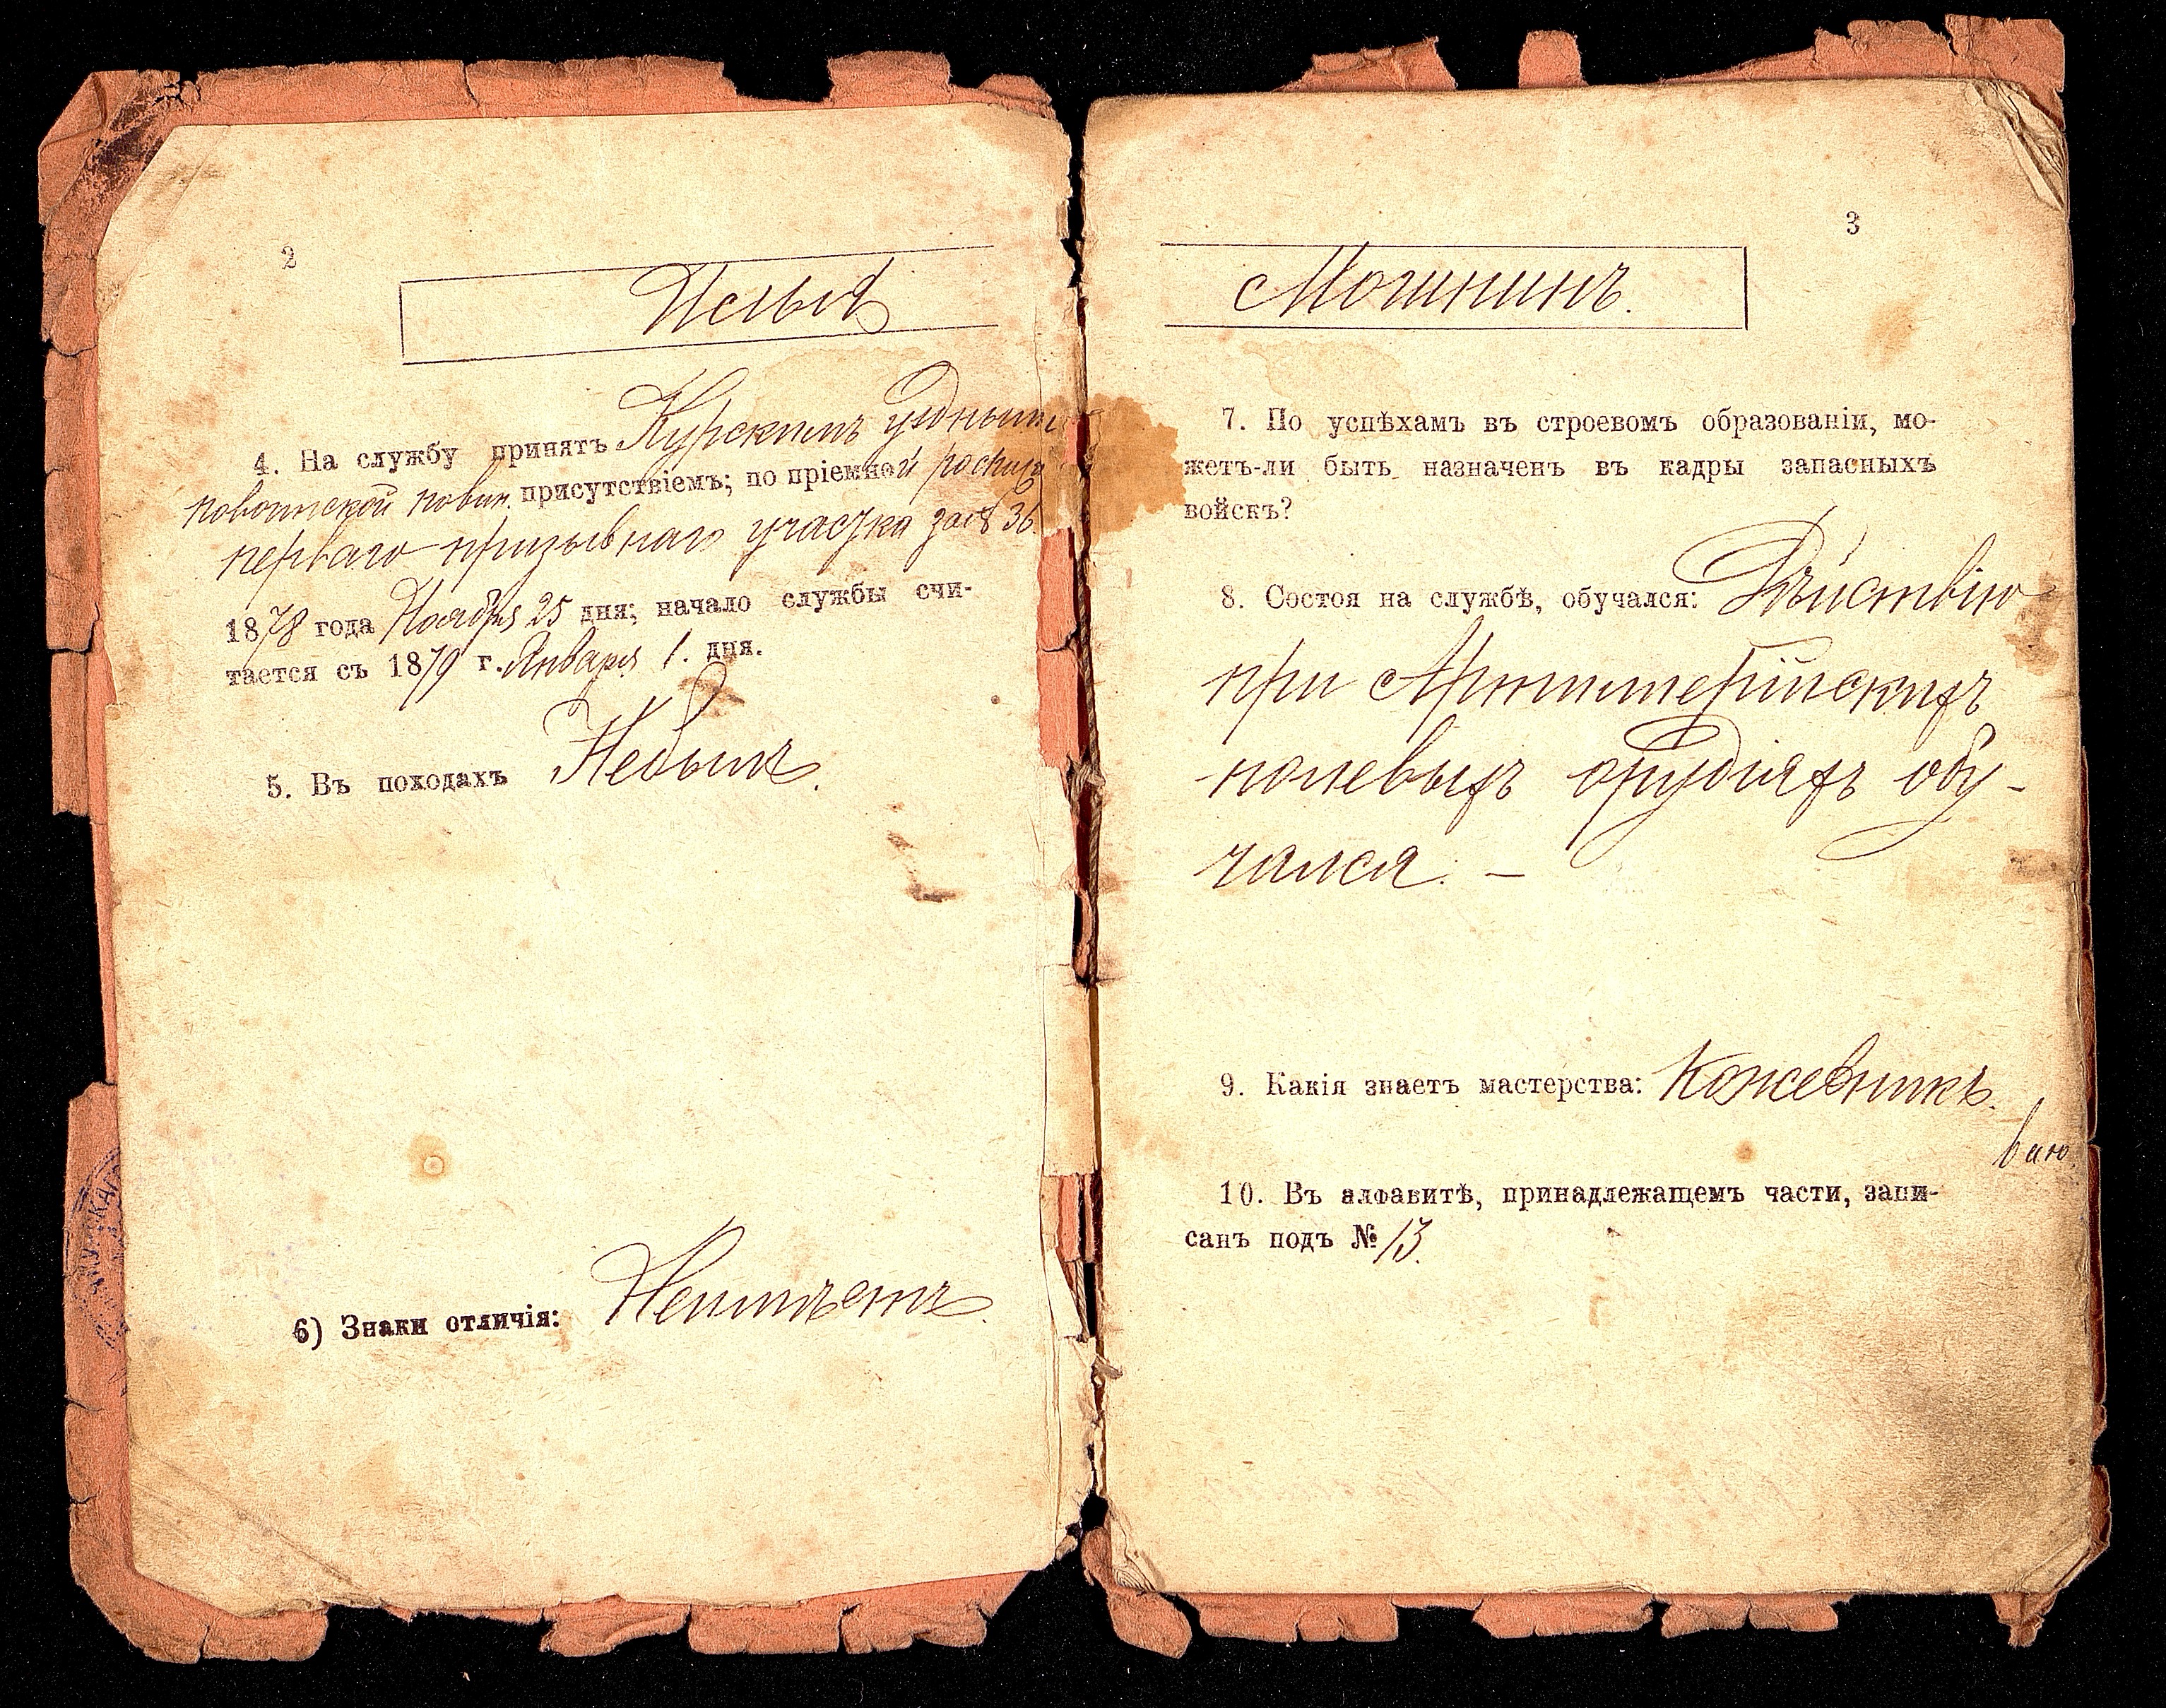 2
Илья
4. На службу принятъ Курскимъ уѣзднымъ
по воинской повин. присутствіемъ; по пріемной роспис
перваго призывнаго участка за № 36.
1878 года Ноября 25 дня; начало службы счи-
тается съ 1879 г. Января 1. дня.
5. Въ походахъ Небылъ.
6) Знаки отличія: Неимѣетъ.
3
Мошнинъ.
7. По успѣхамъ въ строевомъ образованіи, мо-
жетъ-ли быть назначенъ въ кадры запасныхъ
войскъ?
8. Состоя на службѣ, обучался: Дѣйствію
при Артиллерійскихъ
полевыхъ орудіяхъ обу-
чался. —
9. Какія знаетъ мастерства: Кожевникъ.
10. Въ алфавитѣ, принадлежащемъ части, запи-
санъ подъ № 13.